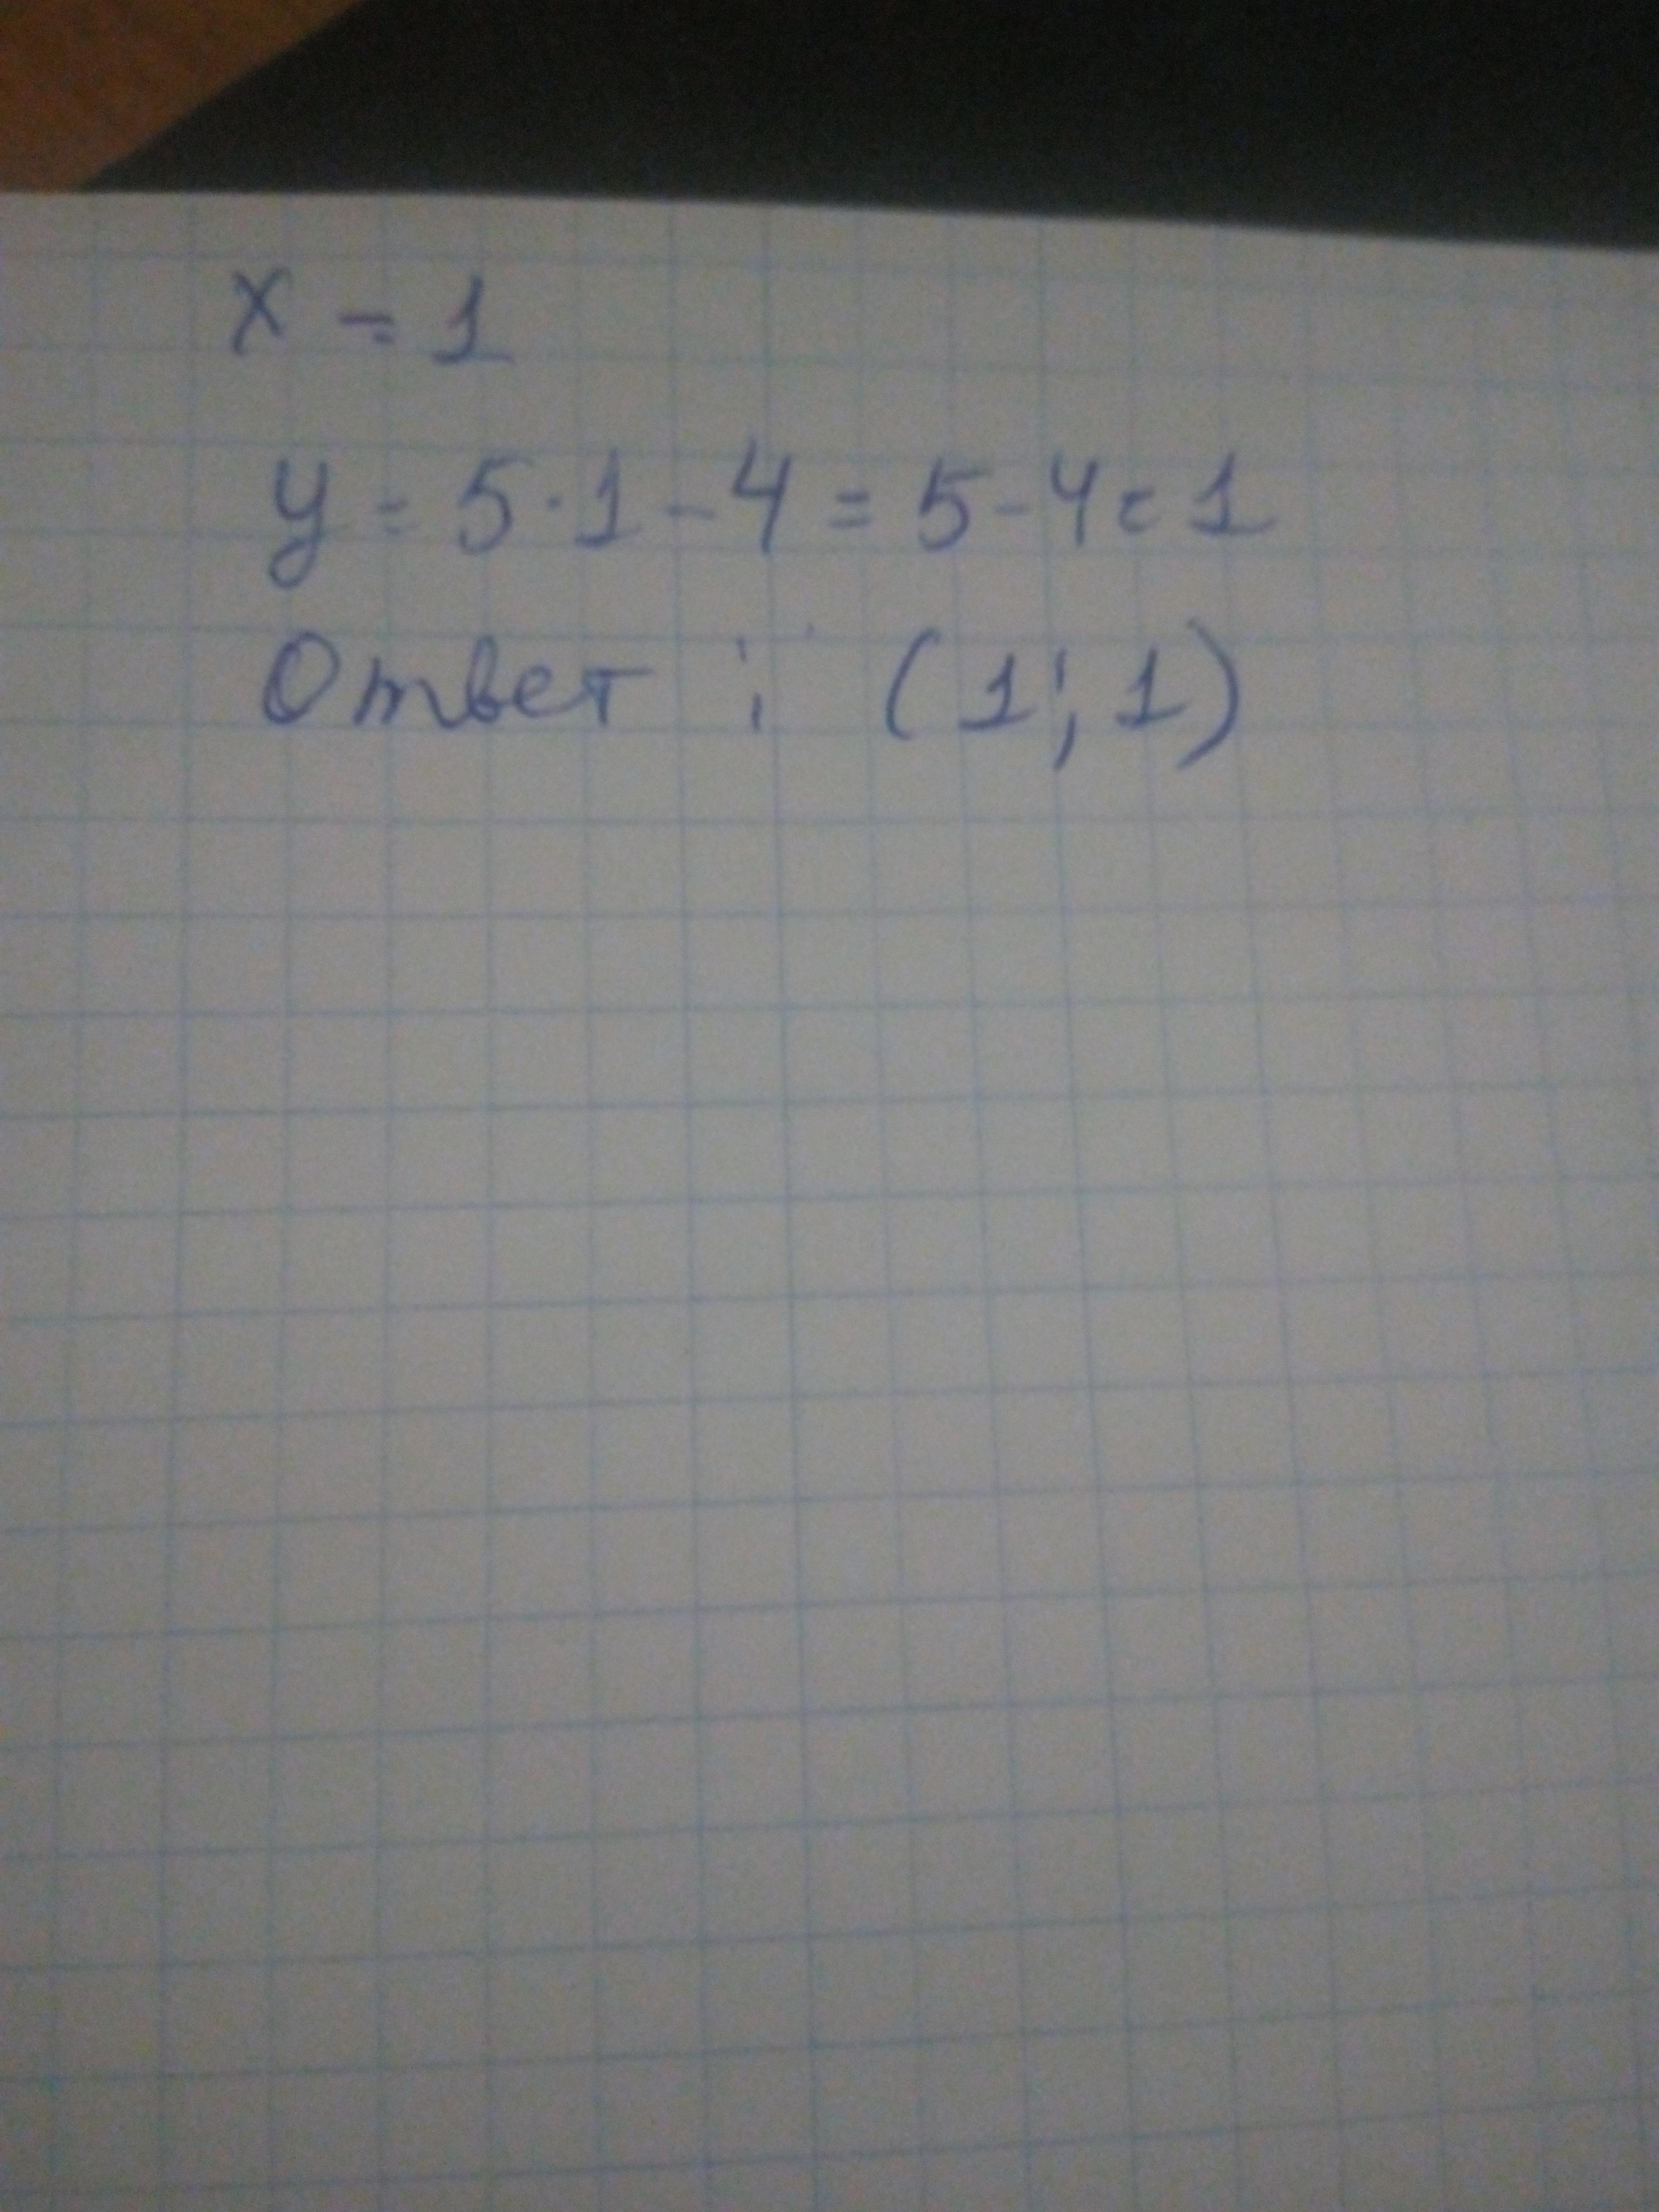 x = 1
y = 5·1-4 = 5-4=1
Ответ: (1; 1)